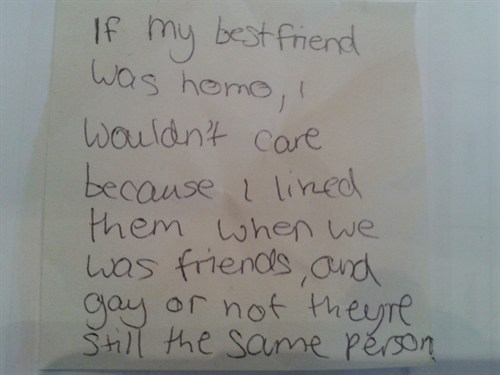 If my bestfriend
was homo, i
wouldn't care
because i liked
them when we
was friends, and
gay or not theyre
still the same person